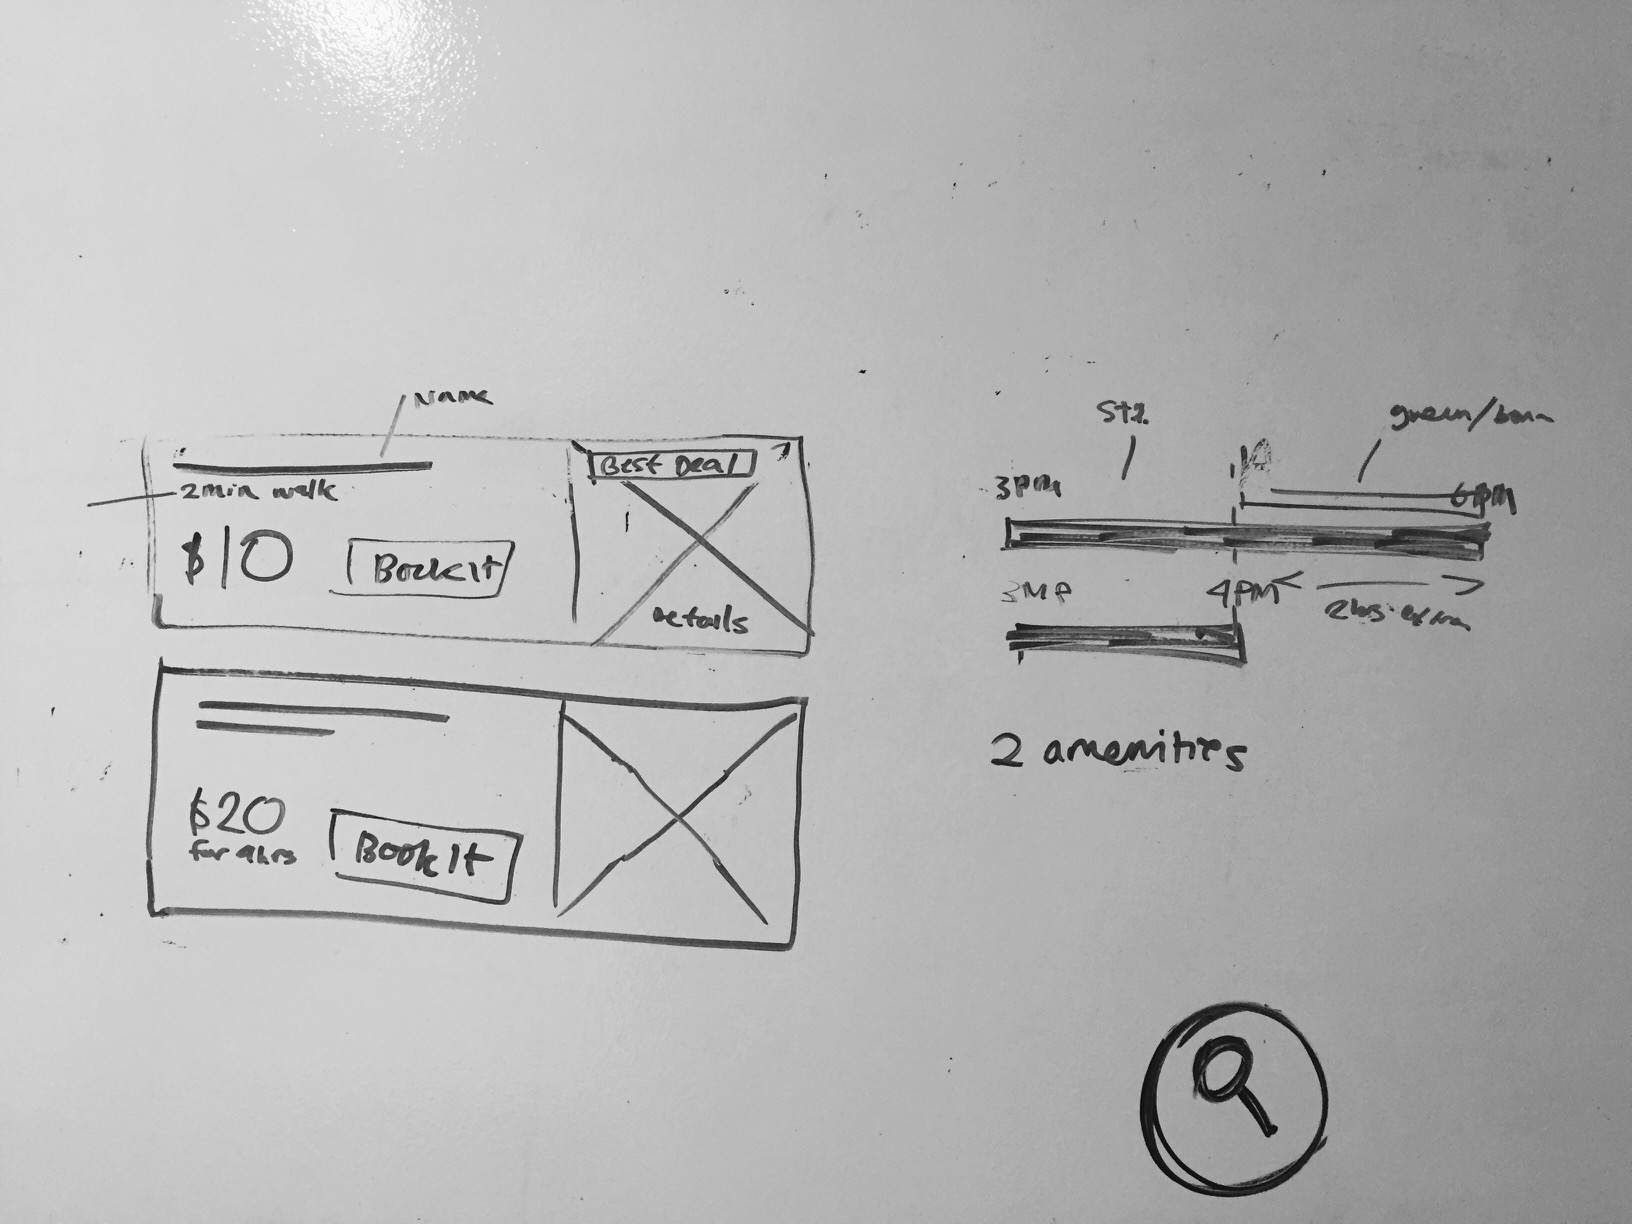 Name
2 min walk
$10
Book It
Best Deal
Details
$20
for 4hrs
Book It
3PM
6PM
4PM
2hrs extra
2 amenities